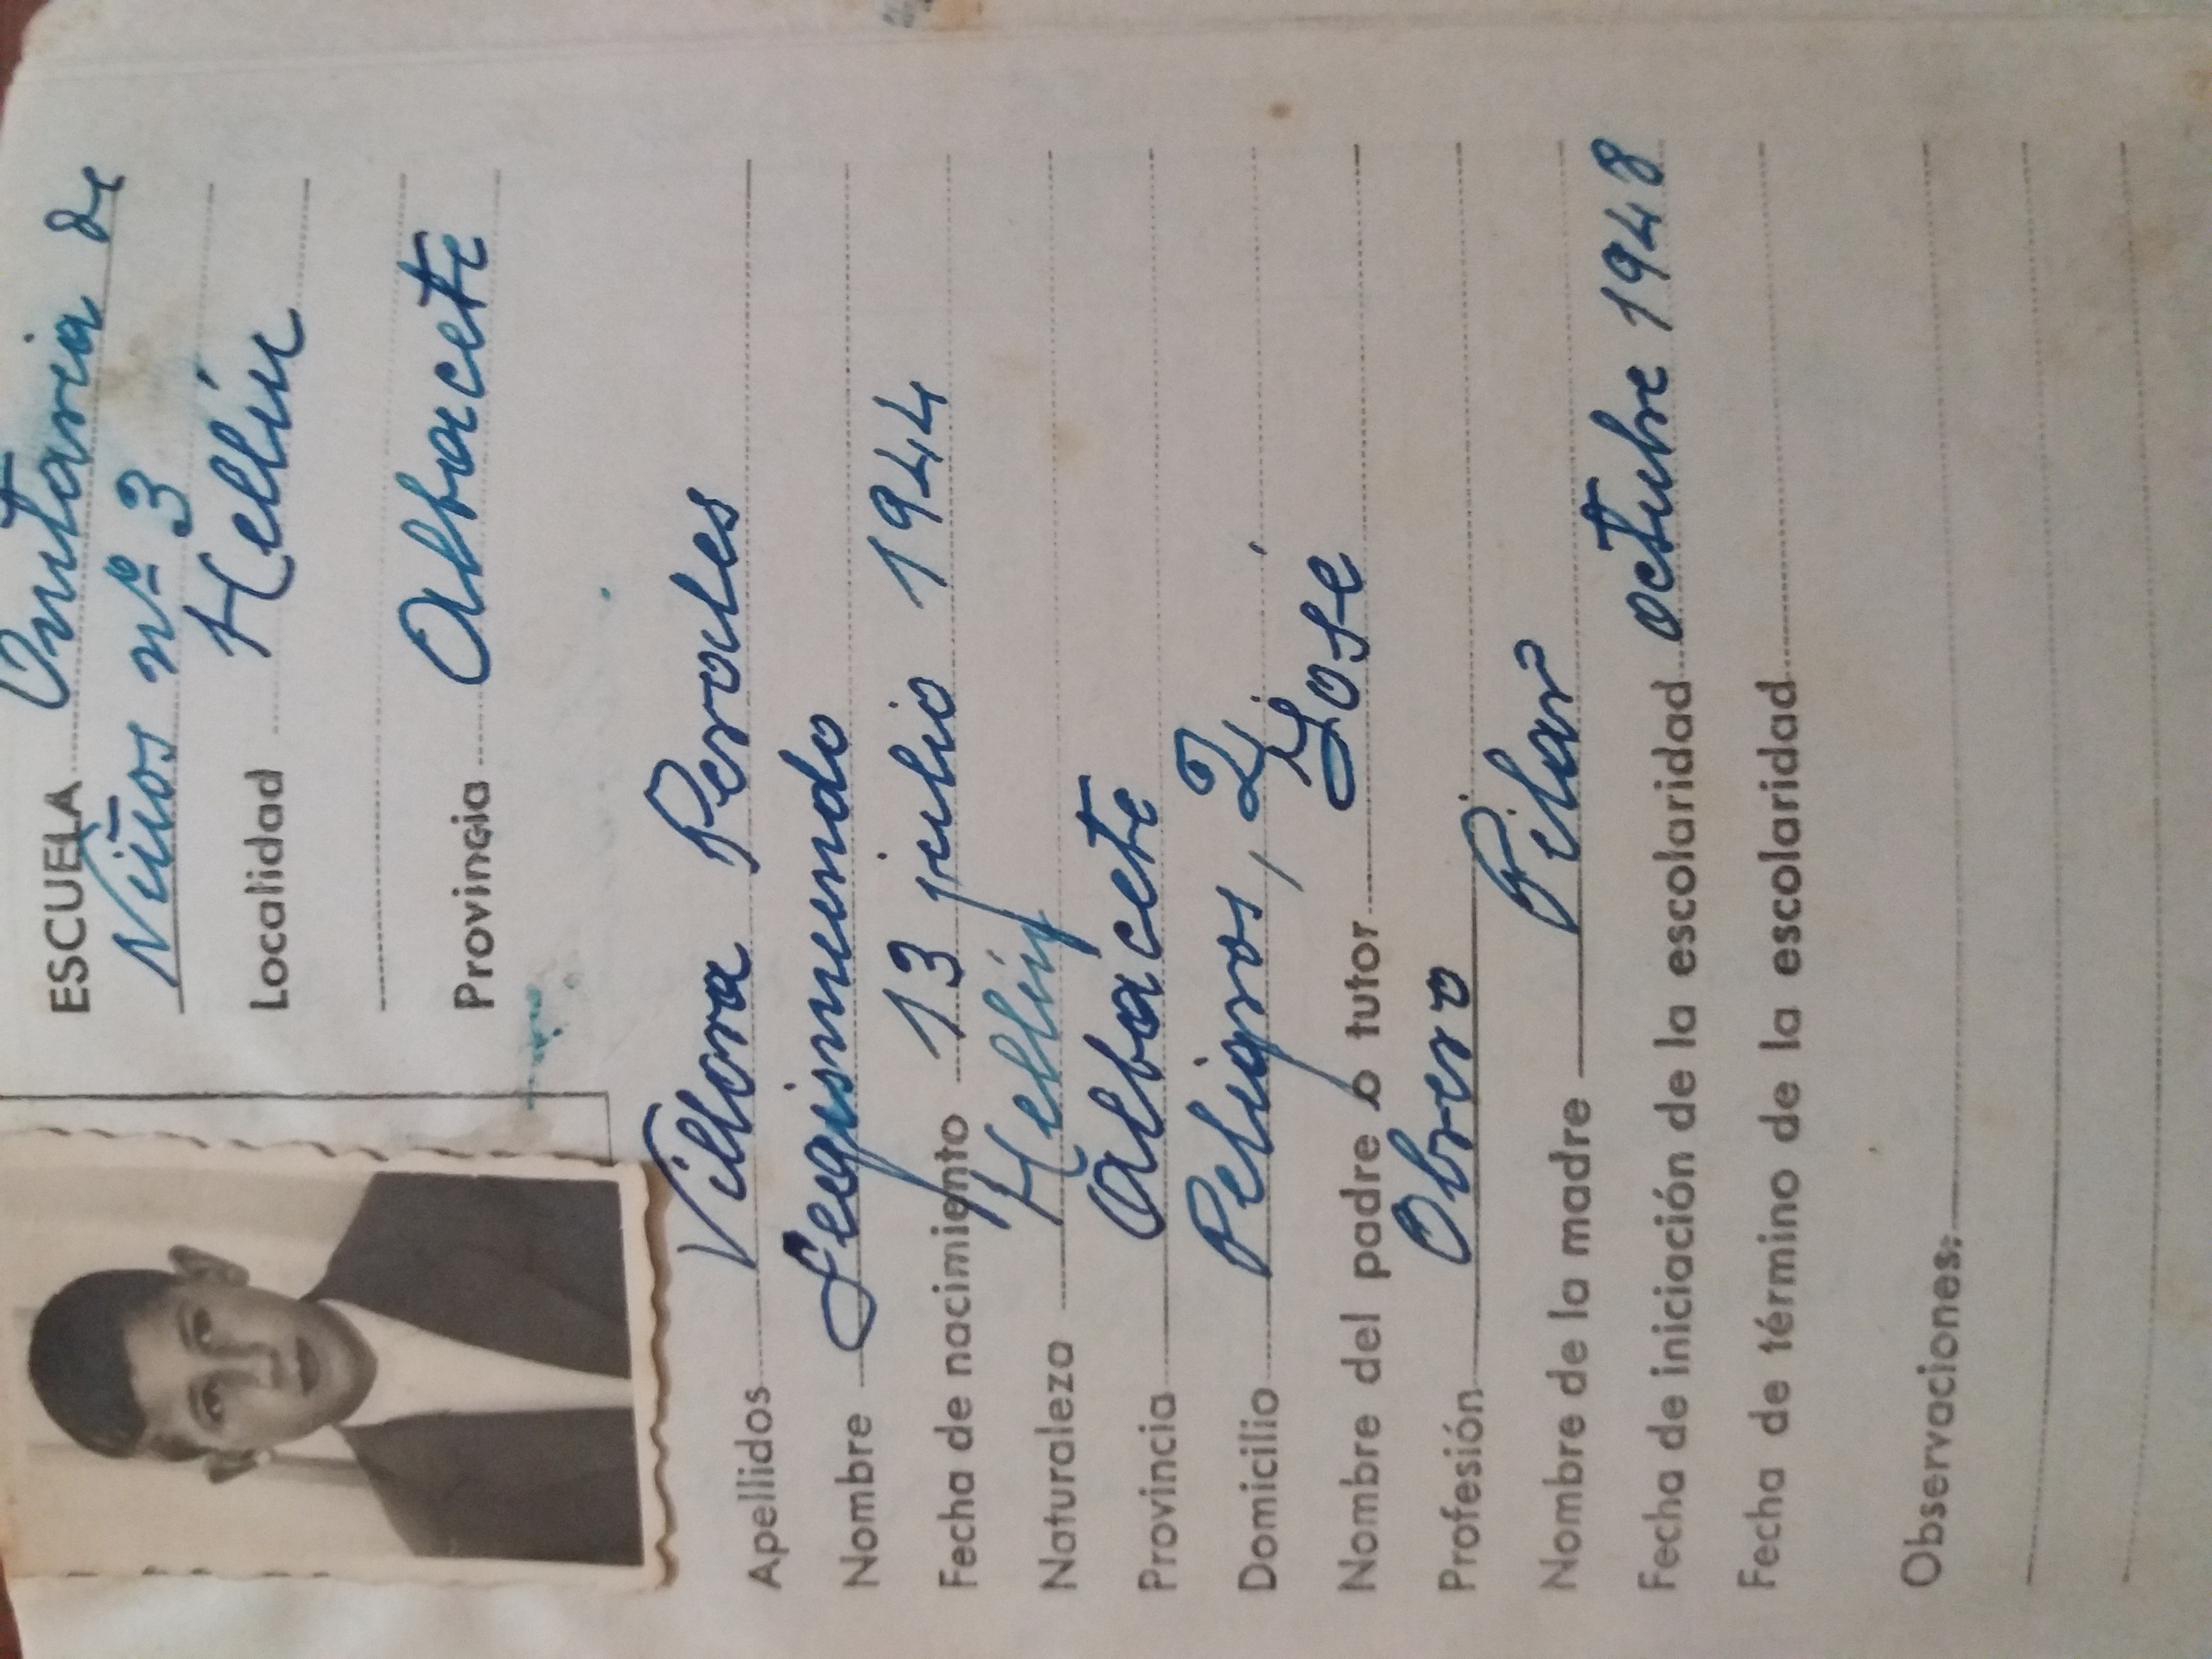 ESCUELA Unitaria de
Niños nº 3
Localidad Hellín
Provincia Albacete
Apellidos Villora Perales
Nombre Segismundo
Fecha de nacimiento 13 julio 1944
Naturaleza Hellín
Provincia Albacete
Domicilio Peligros, 2
Nombre del padre o tutor José
Profesión Obrero
Nombre de la madre Pilar
Fecha de iniciación de la escolaridad octubre 1948
Fecha de término de la escolaridad
Observaciones: